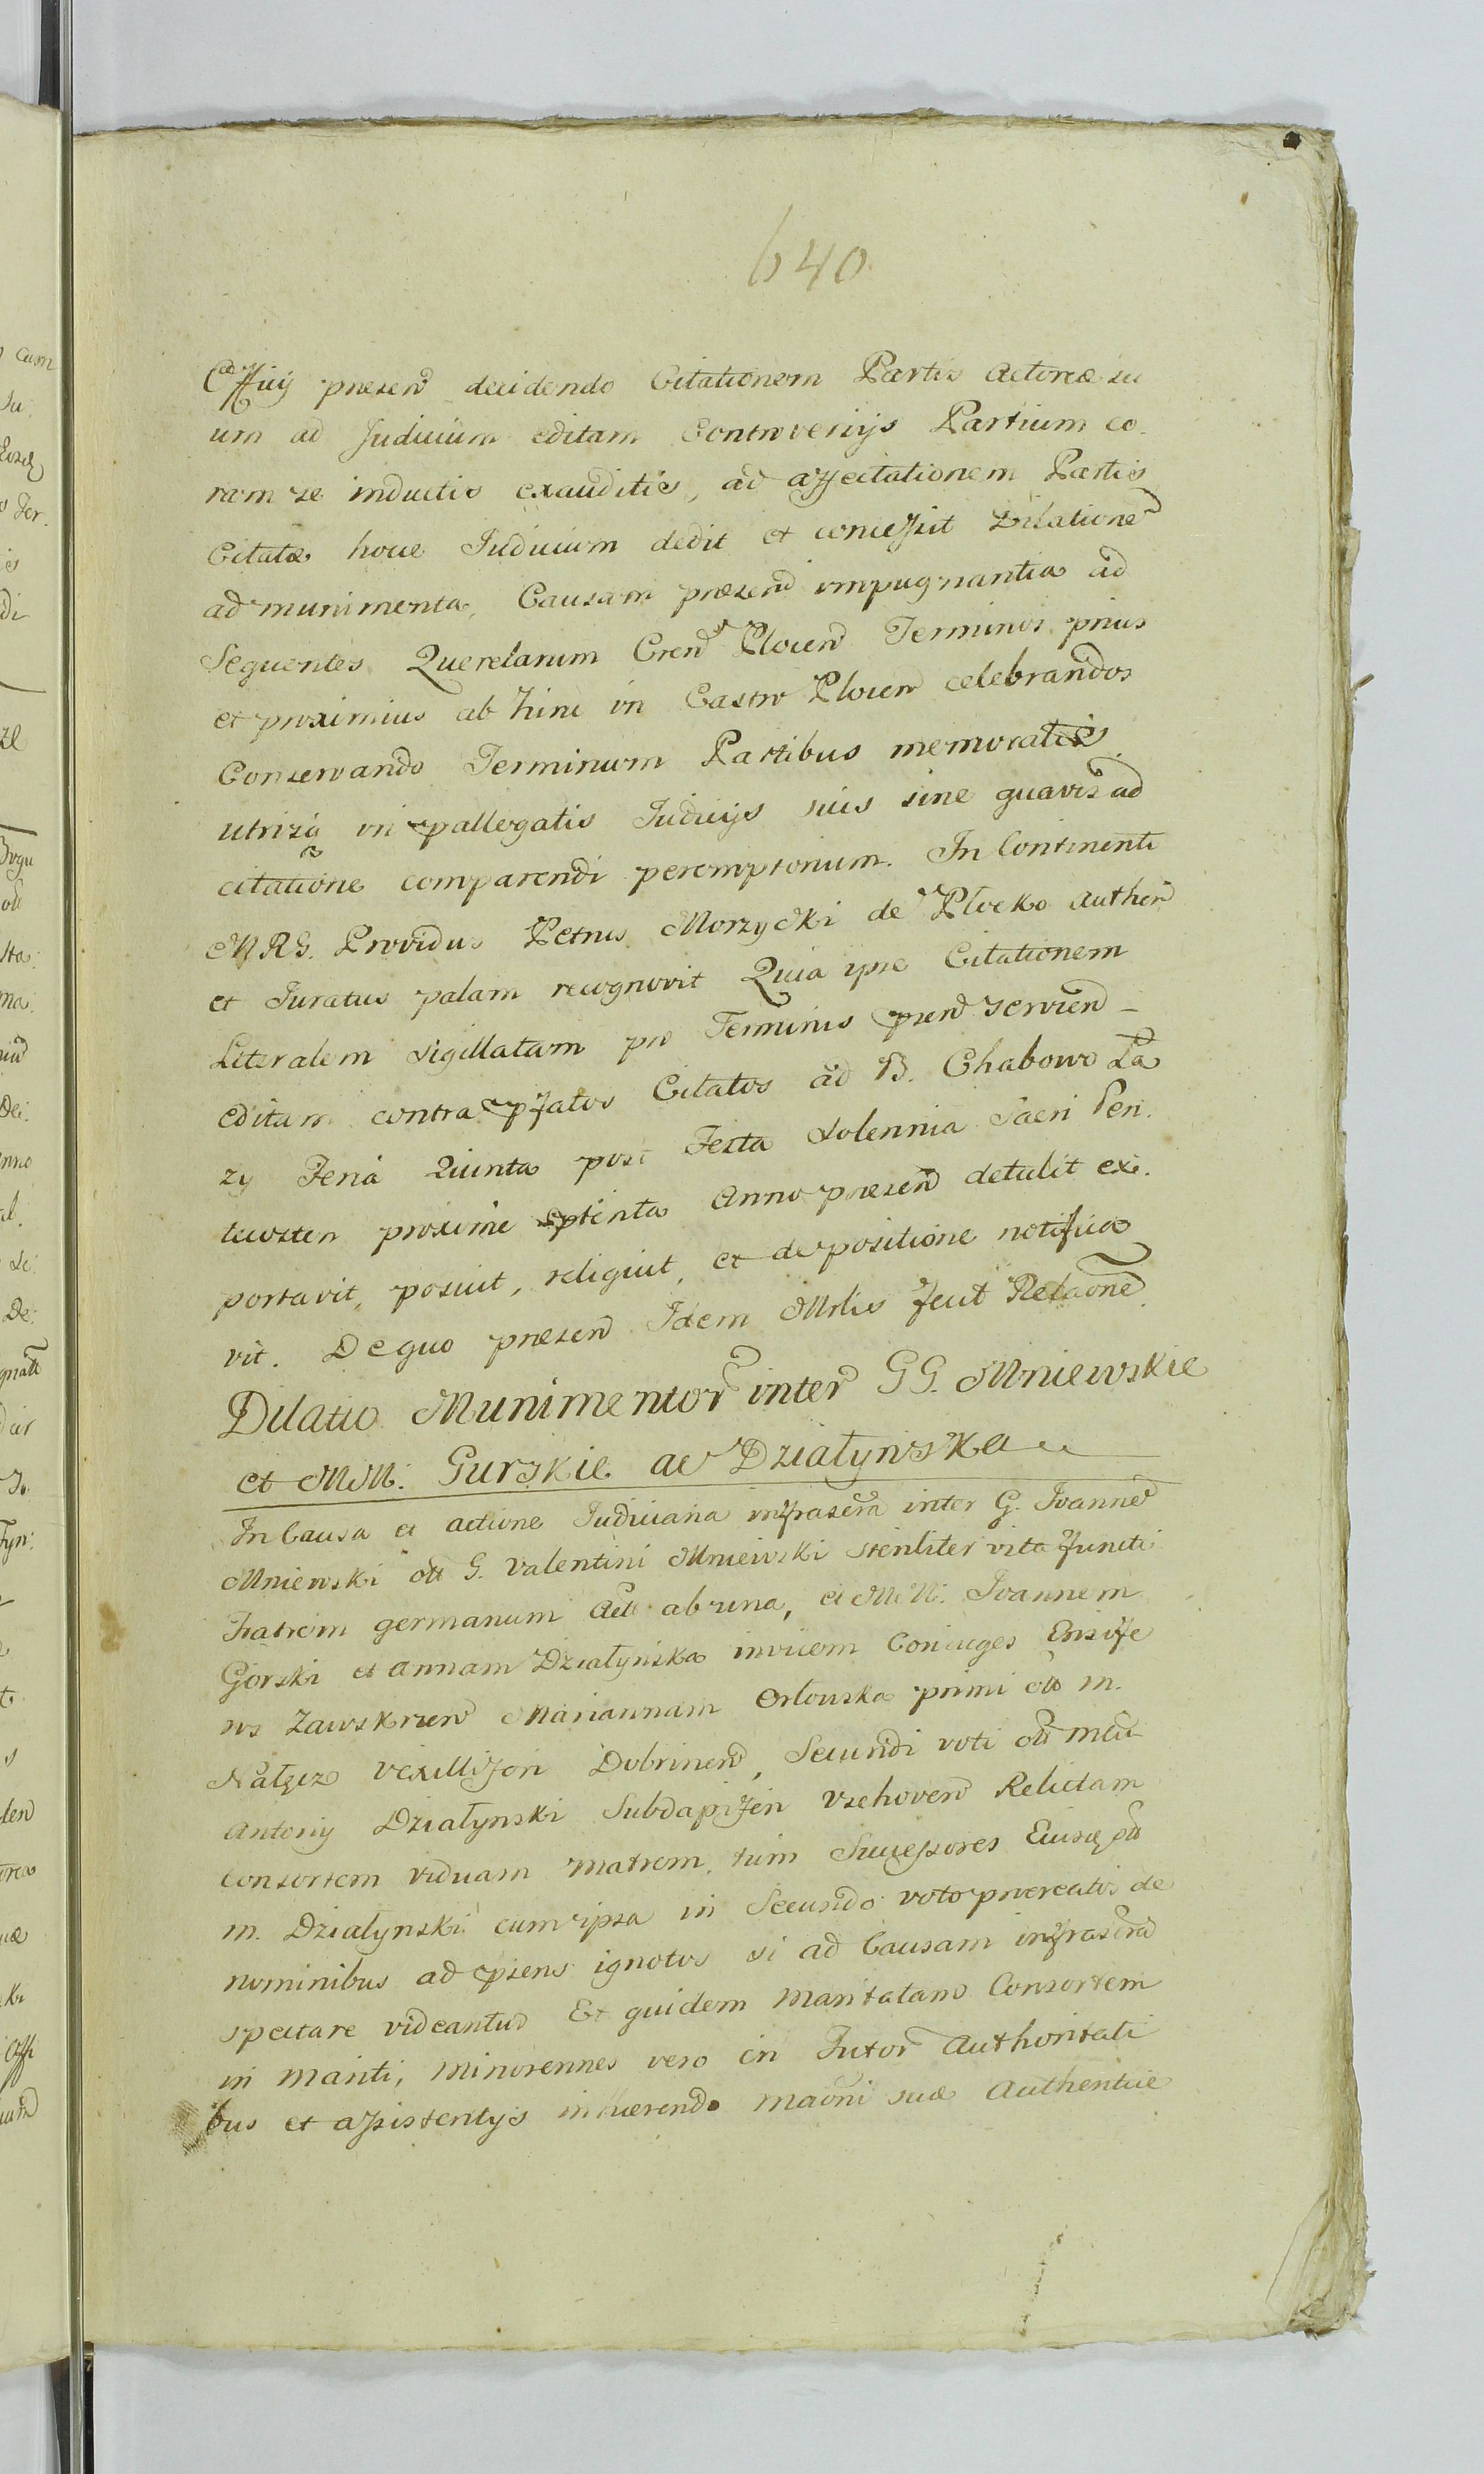 640.
Officij presen decidendo Citationem Partis Actoreæ su
um ad Judicium editam Controversijs Partium co
ram se inductis exauditis, ad affectationem Partis
Citatæ hocce Judicium dedit et concessit Dilatione
ad munimenta, Causam presen impugnantia ad
Sequentes Querelarum Cren Plocen Terminos prius
et proximius ab hinc in Castro Plocen celebrandos
Conservando Terminum Partibus memoratis
utrisq in pallegatis Judicijs suis sine quavis ad
citatione comparendi peremptorium. In Continenti
MRG. Providus Petrus Morzycki de Plocko Authen
et Juratus palam recognovit Quia ipse Citationem
Literalem sigillatam pro Terminis psen servien
editam contra pfatos Citatos ad B. Chabowo La
zy Feria Quinta post Festa Solennia Sacri Pen.
tecosten proxime pterita Anno presen detulit ex.
portavit, posuit, reliquit, et de positione notifica
vit. De quo presen Idem Mrlis fecit Relaone
Dilatio Munimentor inter GG. Mniewskie
et MM. Gurskie ac Działynska
In Causa et actione Judiciaria infrascra inter G. Joanne
Mniewski olt G. Valentini Mniewski steriliter vita functi
Fratrem germanum Act ab una, et MM. Joannem
Gorski et Annam Działynska invicem Coniuges Ensife
ros Zawskrzen Mariannam Orłowska primi olt M.
Nałęcz Vexilliferi Dobrinen, Secundi voti olt
Antonij Działynski Subdapiferi Wschoven Relictam
Consortem viduam Matrem, tum Successores Eiusq olt
M. Działynski cum ipsa in Secundo voto procreatos de
nominibus ad psens ignotos si ad Causam infrascra
spectare videantur Et quidem Maritatam Consortem
in Mariti, Minorennes vero in Tutor Authoritati
bus et assistentijs inhærendo maoni suæ Authenticæ